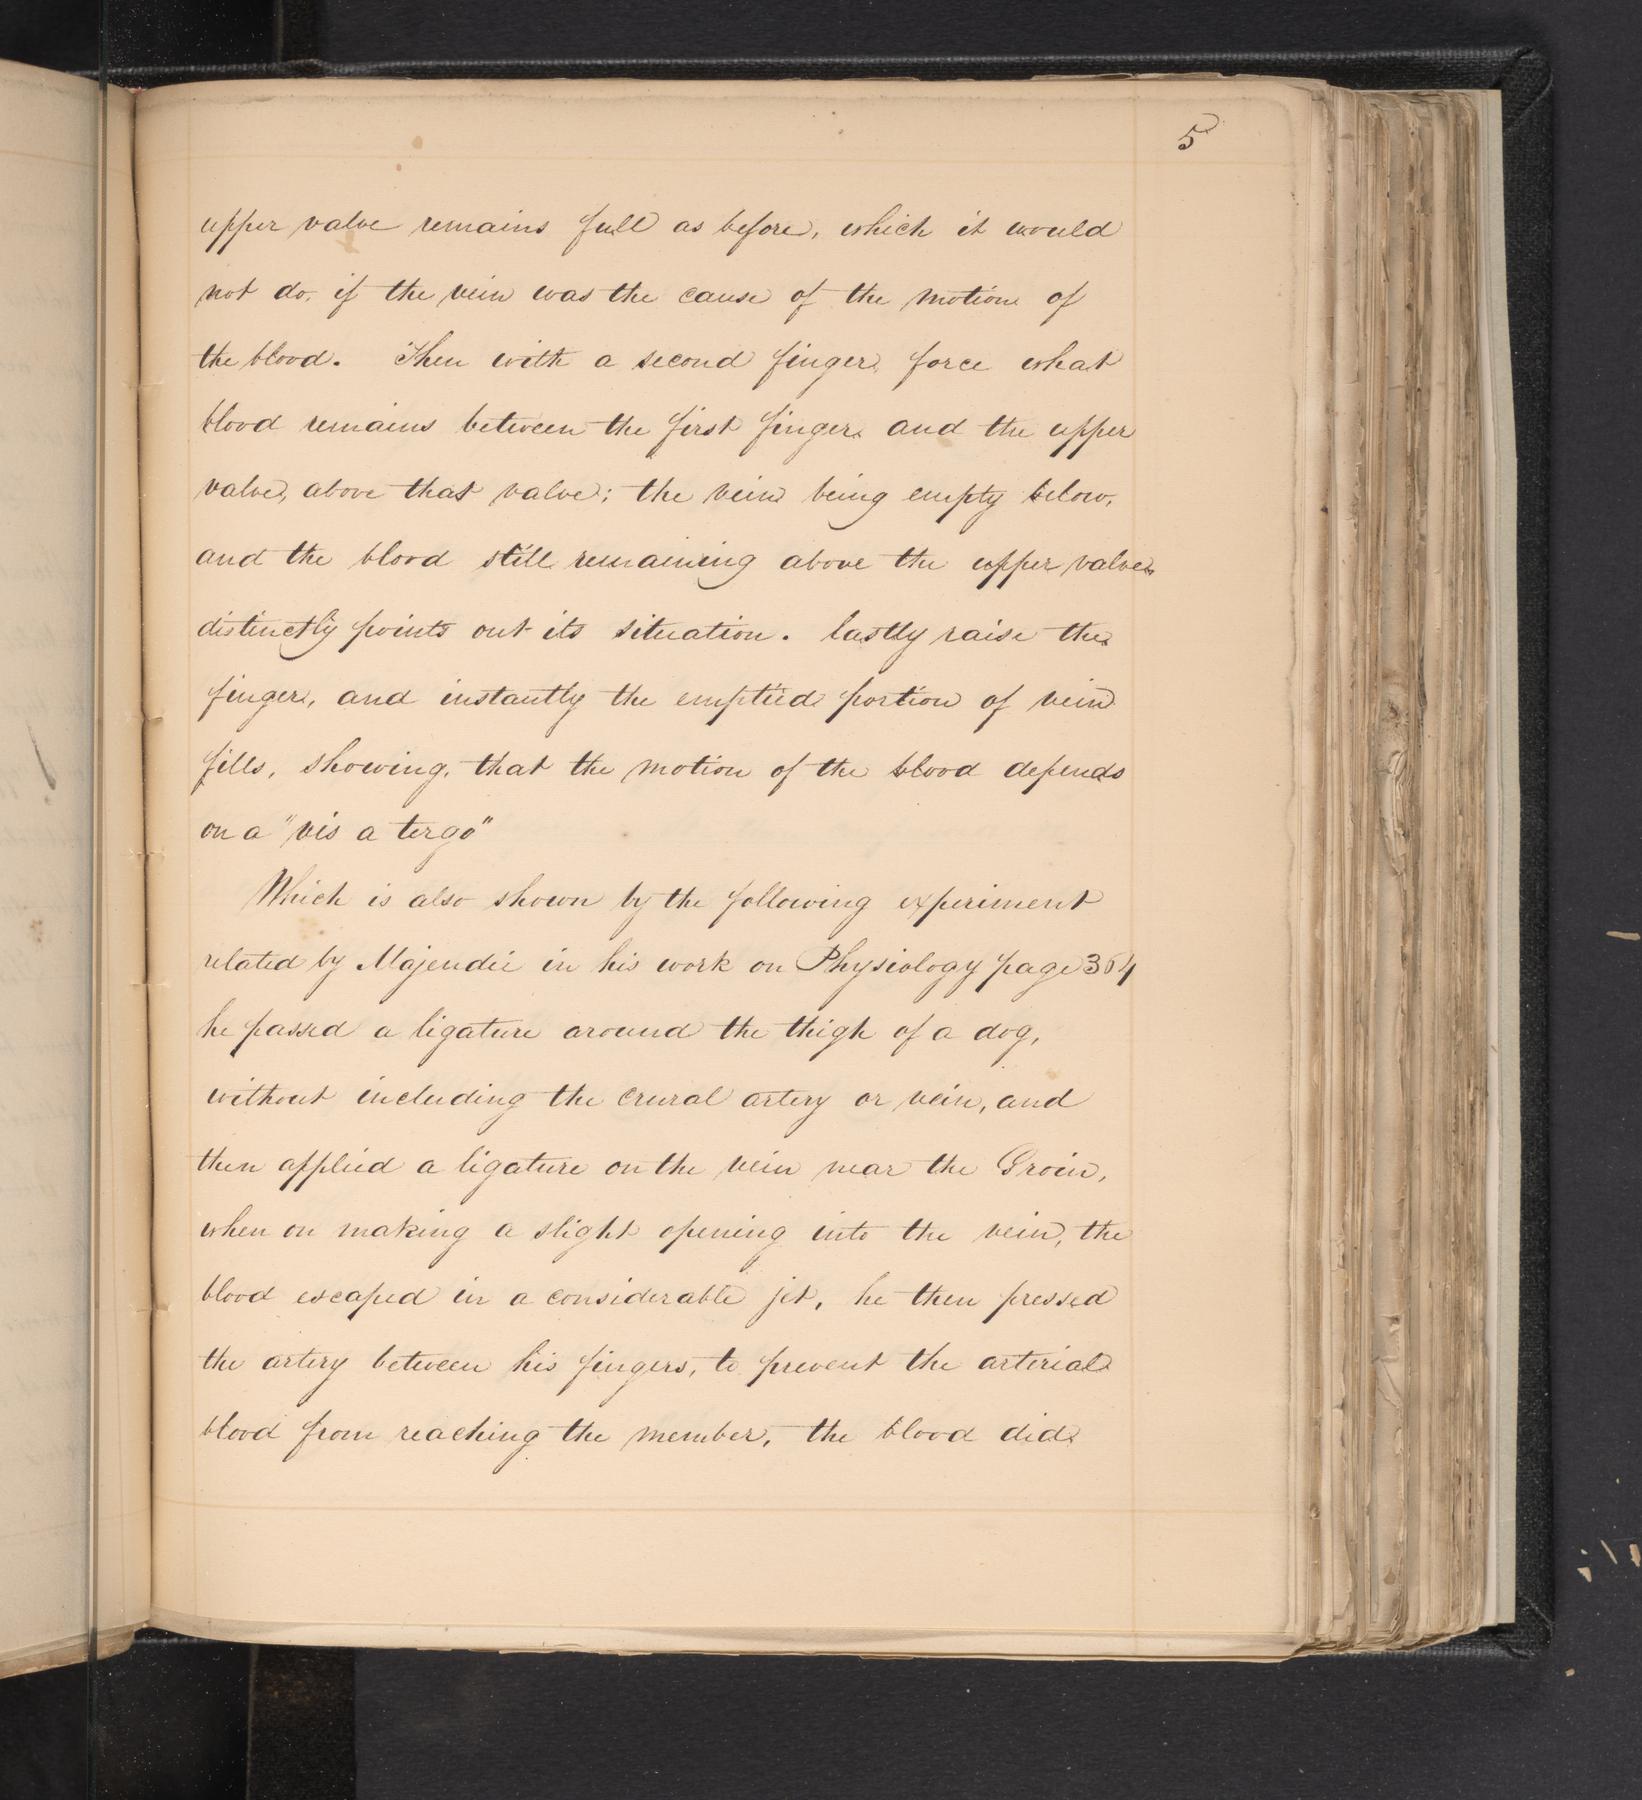 5
upper valve remains full as before, which it would
not do, if the vein was the cause of the motion of
the blood. Then with a second finger, force what
blood remains between the first finger and the upper
valve, above that valve; the vein being empty below,
and the blood still remaining above the upper valve
distinctly points out its situation. lastly raise the
finger, and instantly the emptied portion of vein
fills, showing, that the motion of the blood depends
on a "vis a tergo"
Which is also shown by the following experiment
related by Majendie in his work on Physiology page 364
he passed a ligature around the thigh of a dog,
without including the crural artery or vein, and
then applied a ligature on the vein near the Groin,
when on making a slight opening into the vein, the
blood escaped in a considerable jet, he then pressed
the artery between his fingers, to prevent the arterial
blood from reaching the member, the blood did